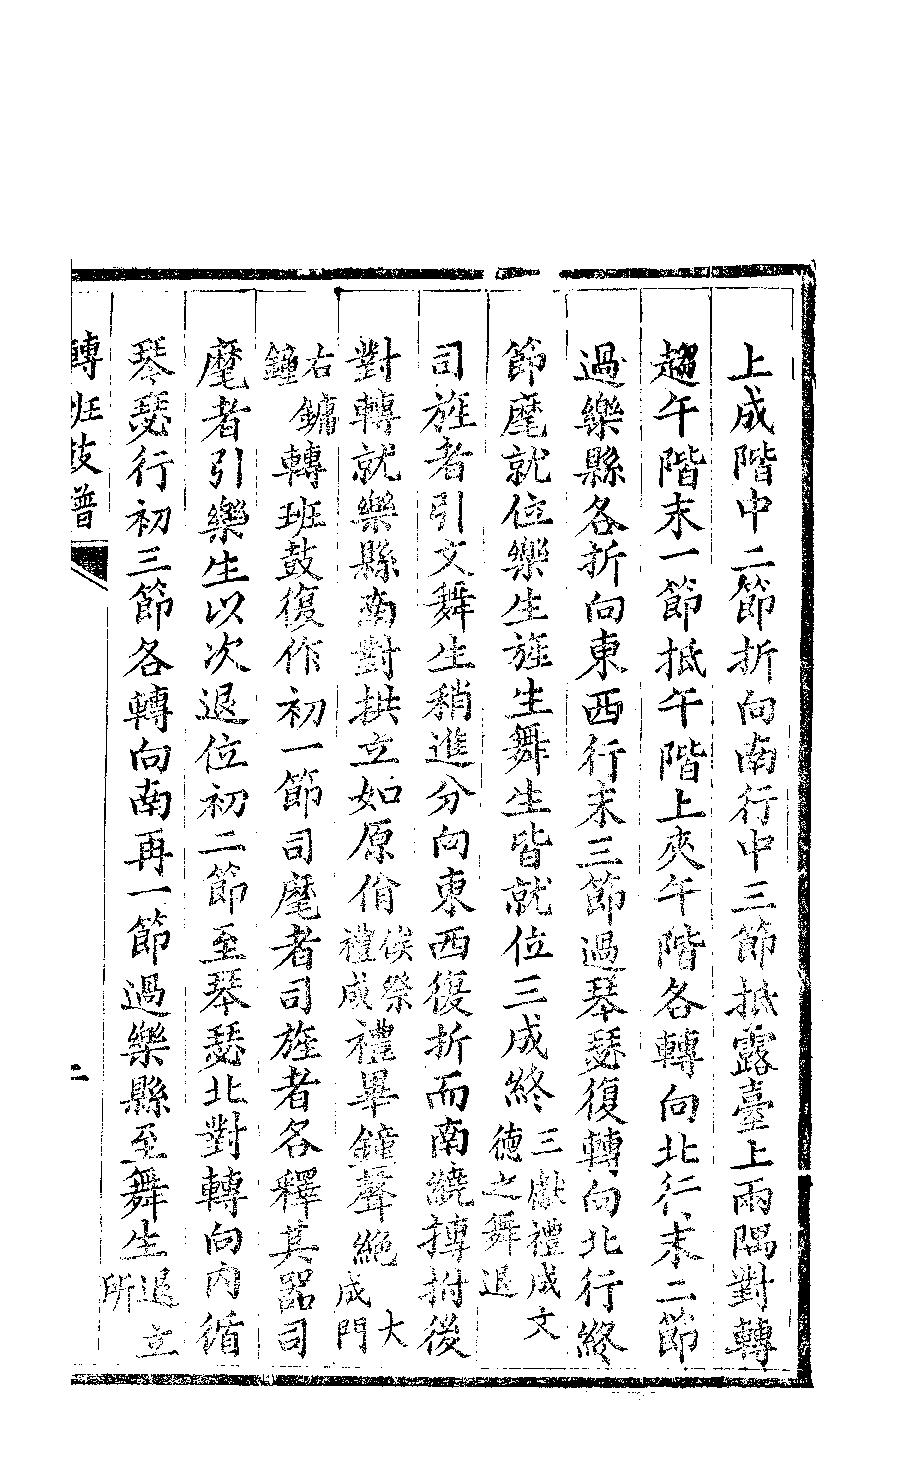 上成階中二節折向南行中三節抵露臺上兩隅對轉
趨午階末一節抵午階上夾午階各轉向北行末二節
過樂縣各折向東西行末三節過琴瑟復轉向北行終
節麾就位樂生旌生舞生皆就位三成終三獻禮成文德之舞退
司旌者引文舞生稍進分向東西復折而南繞摶拊後
對轉就樂縣南對拱立如原佾俟祭禮成禮畢鐘聲絶大成門
右鏞鐘轉班鼓復作初一節司麾者司旌者各釋其器司
麾者引樂生以次退位初二節至琴瑟北對轉向內循
琴瑟行初三節各轉向南再一節過樂縣至舞生退立所
轉班鼓譜